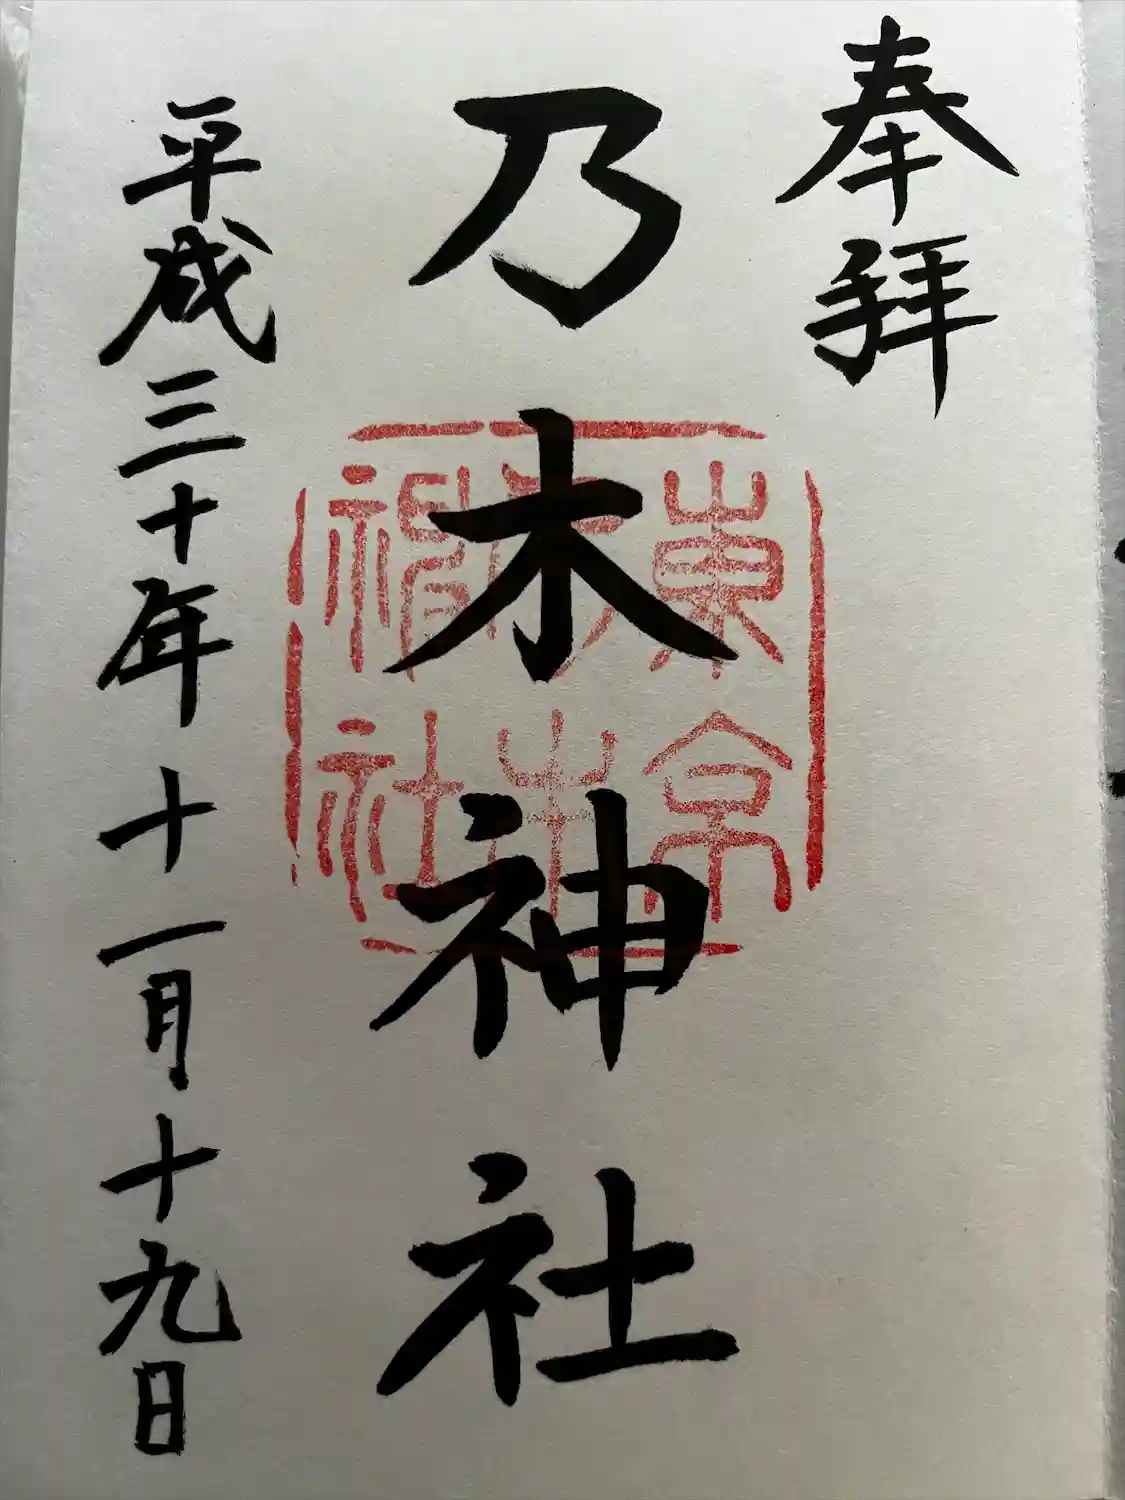 奉拝
乃木神社
東京
乃木
神社
平成三十年十一月十九日